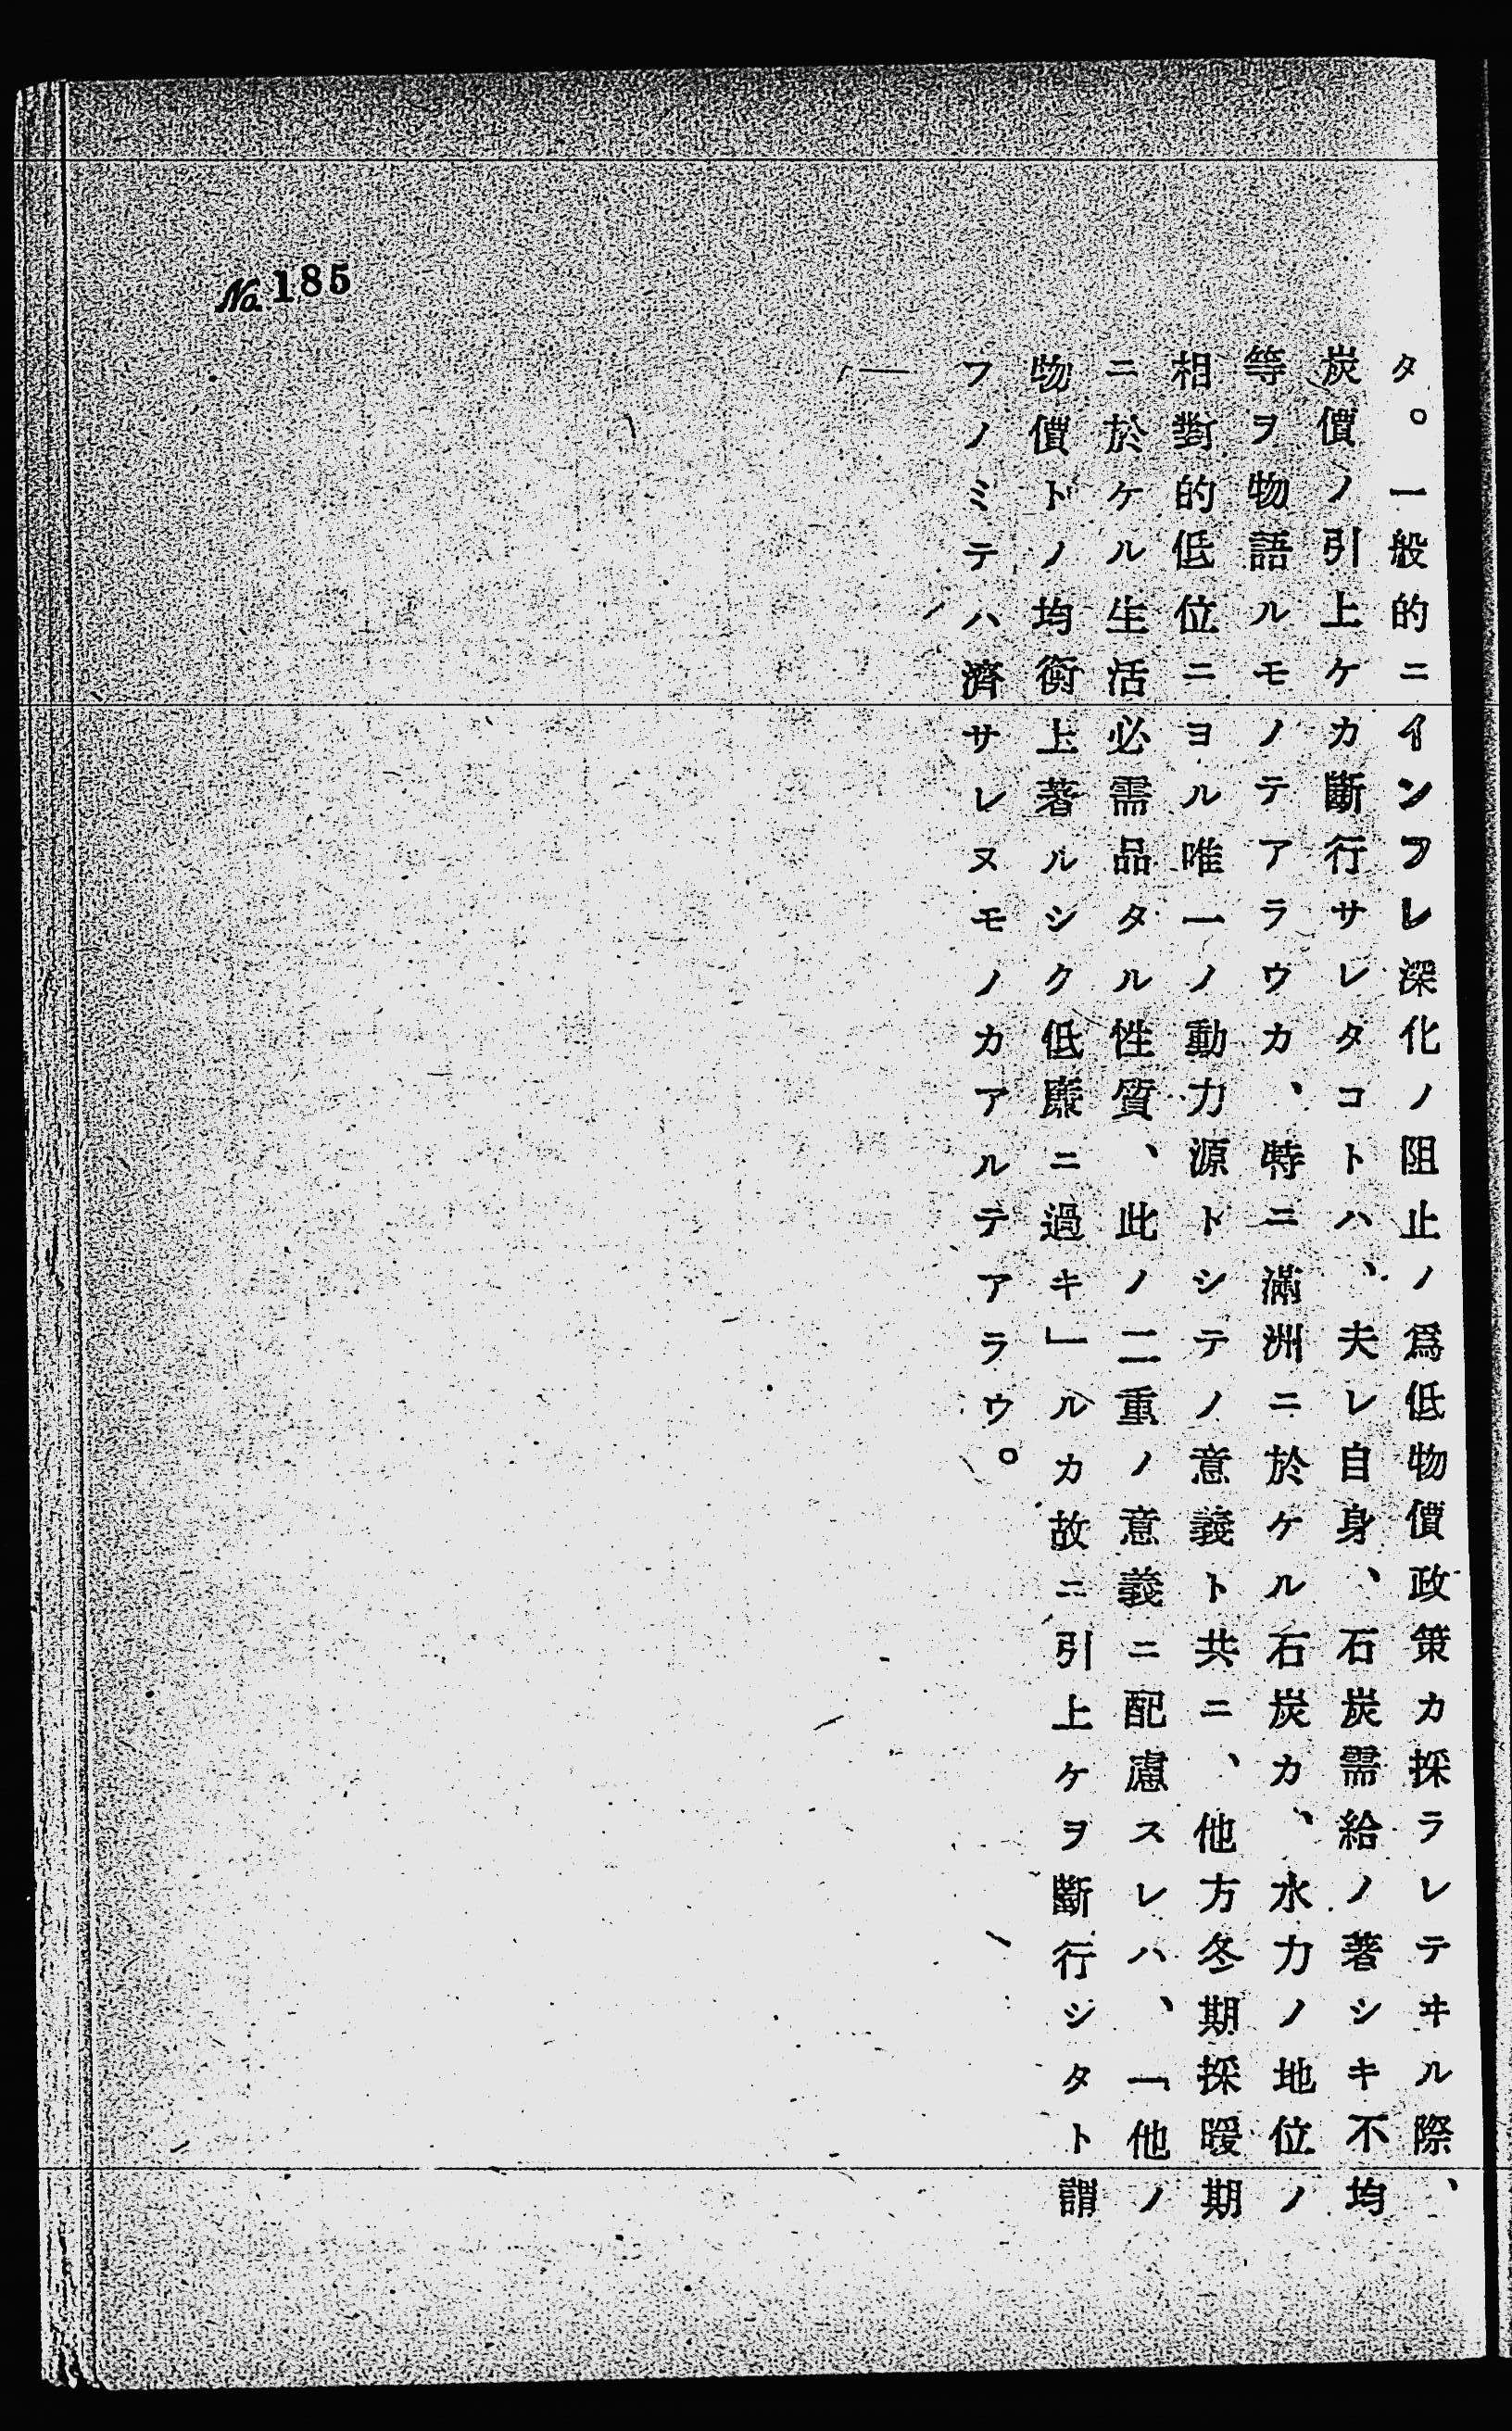 タ。一般的ニインフレ深化ノ阻止ノ爲低物價政策カ採ラレテヰル際、
炭價ノ引上ケカ斷行サレタコトハ、夫レ自身、石炭需給ノ著シキ不均
等ヲ物語ルモノテアラウカ、特ニ滿洲ニ於ケル石炭カ、水力ノ地位ノ
相對的低位ニヨル唯一ノ動力源トシテノ意義ト共ニ、他方冬期採暖期
ニ於ケル生活必需品タル性質、此ノ二重ノ意義ニ配慮スレハ、「他ノ
物價トノ均衡上著ルシク低廉ニ過キ」ルカ故ニ引上ケヲ斷行シタト謂
フノミテハ濟サレヌモノカアルテアラウ。
№185